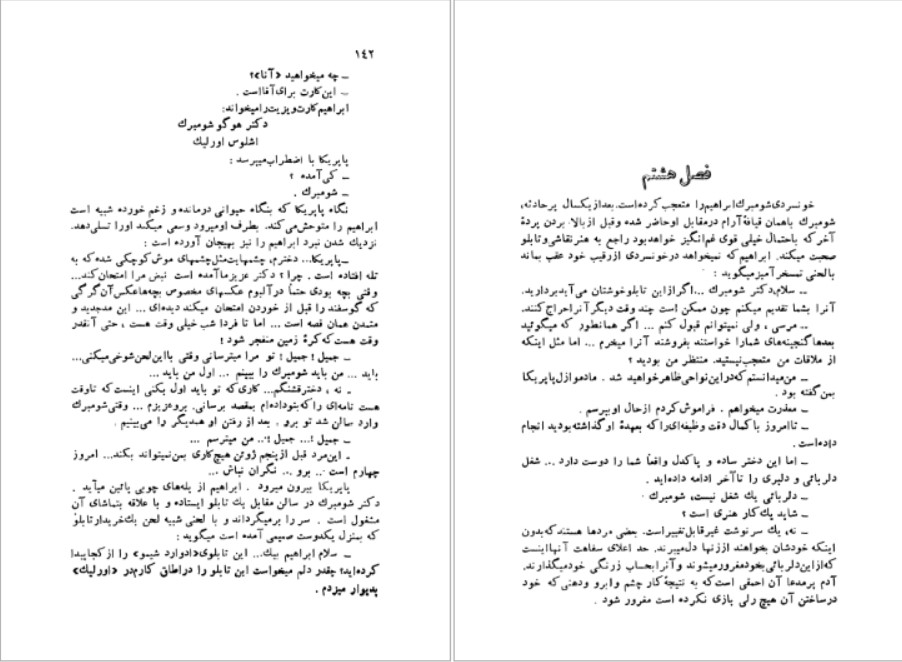 ۱۴۲
ـ چه میخواهید «آنا»؟
ـ این کارت برای آقا است .
ابراهیم کارت ویزیت را میخواند:
دکتر هوگو شومبرك
اشلوس اورلیك
پاپریکا با اضطراب میپرسد :
ـ کی آمده ؟
ـ شومبرك .
نگاه پاپریکا که بنگاه حیوانی درمانده و زخم خورده شبیه است
ابراهیم را متوحش می‌کند. بطرف او میرود وسعی میکند اورا تسلی‌دهد.
نزدیك شدن نبرد ابراهیم را نیز بهیجان آورده است :
ـ پاپریکا... دخترم، چشمهایت مثل چشمهای موش کوچکی شده که به
تله افتاده است . چرا ؟ دکتر عزیز ما آمده است نبض مرا امتحان کند...
وقتی بچه بودی حتماً درآلبوم عکسهای مخصوص بچه‌ها عکس آن گرگی
که گوسفند را قبل از خوردن امتحان میکند دیده‌ای ... این مدجدید و
متمدن همان قصه است ... اما تا فردا شب خیلی وقت هست ، حتی آنقدر
وقت هست که کرهٔ زمین منفجر شود !
ـ جمیل ! جمیل ! تو مرا میترسانی وقتی با این لحن شوخی میکنی...
باید ... من باید شومبرك را ببینم ... اول من باید ...
ـ نه ، دختر قشنگم... کاری که تو باید اول بکنی اینست که تا وقت
هست نامه‌ای را که بتوداده‌ام بمقصد برسانی. برو عزیزم ... وقتی شومبرك
وارد سالن شد تو برو . بعد از رفتن او همدیگر را می‌بینیم .
ـ جمیل !... جمیل !... من میترسم ...
ـ این مرد قبل از پنجم ژوئن هیچ‌کاری بمن نمیتواند بکند... امروز
چهارم است ... برو ... نگران نباش ...
پاپریکا بیرون میرود . ابراهیم از پله‌های چوبی پائین میآید .
دکتر شومبرك در سالن مقابل یك تابلو ایستاده و با علاقه بتماشای آن
مشغول است . سر را برمیگرداند و با لحنی شبیه لحن یك خریدار تابلو
که بمنزل یکدوست صمیمی آمده است میگوید :
ـ سلام ابراهیم بیك... این تابلوی «ادوارد شیمو» را از کجا پیدا
کرده‌اید؟ چقدر دلم میخواست این تابلو را در اطاق کارم در «اورلیك»
بدیوار میزدم .
فصل هشتم
خونسردی شومبرك ابراهیم را متعجب کرده است. بعد از یکسال پرحادثه،
شومبرك باهمان قیافهٔ آرام درمقابل او حاضر شده وقبل از بالا بردن پردهٔ
آخر که باحتمال خیلی قوی غم‌انگیز خواهد بود راجع به هنر نقاشی و تابلو
صحبت میکند. ابراهیم که نمیخواهد در خونسردی از رقیب خود عقب بماند
با لحنی تمسخر آمیز میگوید :
ـ سلام، دکتر شومبرك ... اگر از این تابلو خوشتان می‌آید بردارید.
آنرا بشما تقدیم میکنم چون ممکن است چند وقت دیگر آنرا حراج کنند.
ـ مرسی ، ولی نمیتوانم قبول کنم ... اگر همانطور که میگوئید
بعدها گنجینه‌های شما را خواستند بفروشند آنرا میخرم ... اما مثل اینکه
از ملاقات من متعجب نیستید. منتظر من بودید ؟
ـ من میدانستم که در این نواحی ظاهر خواهید شد . مادموازل پاپریکا
بمن گفته بود .
ـ معذرت میخواهم . فراموش کردم از حال او بپرسم .
ـ تا امروز با کمال دقت وظیفه‌ای را که بعهدهٔ او گذاشته بودید انجام
داده است .
ـ اما این دختر ساده و پاکدل واقعاً شما را دوست دارد ... شغل
دلربائی و دلبری را تا آخر ادامه داده‌اید .
ـ دلربائی یك شغل نیست، شومبرك
ـ شاید یك کار هنری است ؟
ـ نه، یك سرنوشت غیرقابل تغییر است. بعضی مردها هستند که بدون
اینکه خودشان بخواهند از زنها دل میبرند. حد اعلای سفاهت آنها اینست
که از این دلربائی بخود مغرور میشوند و آنرا بحساب زرنگی خود میگذارند.
آدم پرمدعا آن احمقی است که به نتیجهٔ کار چشم و ابرو ودهنی که خود
در ساختن آن هیچ رلی بازی نکرده است مغرور شود .